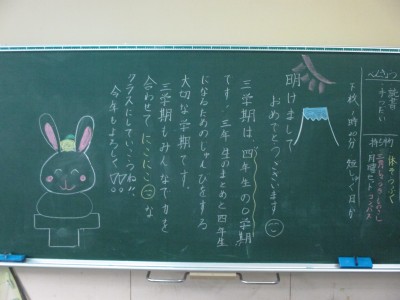 へんきょう
読書
手つだい
持ち物
下校 八時40分
明けまして
おめでとうございます
三学期は四年生の0学期
です。三年生のまとめと四年生
になるためのじゅんびをする
大切な学期です。
三学期もみんなで力を
合わせて にこにこ な
クラスにしていこうね!!
今年もよろしく